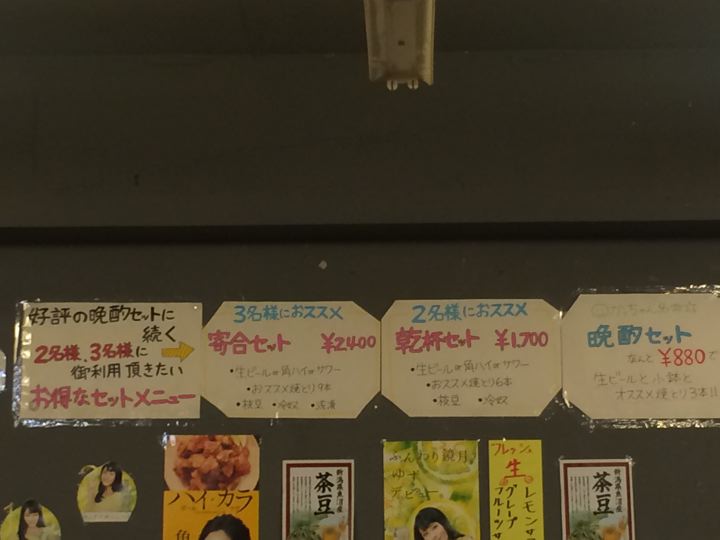 好評の晩酌セットに
続く
2名様、3名様に
御利用頂きたい
お得なセットメニュー
3名様におススメ
寄合セット ¥2400
・生ビールor角ハイorサワー
・おススメ焼とり9本
・枝豆 ・冷奴 ・浅漬
2名様におススメ
乾杯セット ¥1,700
・生ビールor角ハイorサワー
・おススメ焼とり6本
・枝豆 ・冷奴
晩酌セット
なんと ¥880で
生ビールと小鉢と
オススメ焼とり3本!!
ハイ・カラ
新潟県魚沼産
茶豆
ふんわり鏡月
ゆず
デビュー
フレッシュ
生
レモンサ
グレープ
フルーツサ
新潟県魚沼産
茶豆